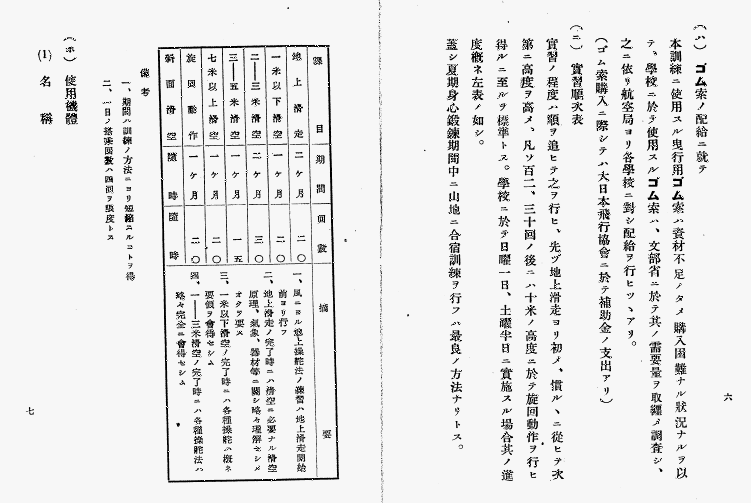 (ハ) ゴム索ノ配給ニ就テ
本訓練ニ使用スル曳行用ゴム索ハ資材不足ノタメ購入困難ナル狀況ナルヲ以
テ、學校ニ於テ使用スルゴム索ハ、文部省ニ於テ其ノ需要量ヲ取纒メ調査シ、
之ニ依リ航空局ヨリ各學校ニ對シ配給ヲ行ヒツヽアリ。
(ゴム索購入ニ際シテハ大日本飛行協會ニ於テ補助金ノ支出アリ)
(ニ) 實習順次表
實習ノ程度ハ順ヲ追ヒテ之ヲ行ヒ、先ヅ地上滑走ヨリ初メ、慣ルヽニ從ヒテ次
第ニ高度ヲ高メ、凡ソ百二、三十回ノ後ニハ十米ノ高度ニ於テ旋回動作ヲ行ヒ
得ルニ至ルヲ標準トス。學校ニ於テ日曜一日、土曜半日ニ實施スル場合其ノ進
度槪ネ左表ノ如シ。
蓋シ夏期身心鍛鍊期間中ニ山地ニ合宿訓練ヲ行フハ最良ノ方法ナリトス。
六
課目 期間 回數 摘要
地上滑走 一ヶ月 二〇
一米以下滑空 一ヶ月 二〇
二―三米滑空 二ヶ月 三〇
三―五米滑空 一ヶ月 一五
七米以上滑空 一ヶ月 二〇
旋回動作 一ヶ月 二〇
斜面滑空 隨時 隨時
一、風ニヨル地上操舵法ノ練習ハ地上滑走開始
前ヨリ行フ
二、地上滑走ノ完了時ニハ滑空ニ必要ナル滑空
原理、氣象、器材等ニ關シ略々理解セシメ
オクヲ要ス
三、一米以下滑空ノ完了時ニハ各種操舵ハ槪ネ
要領ヲ會得セシム
四、一――三米滑空ノ完了時ニハ各種操舵法ハ
略々完全ニ會得セシム
備考
一、期間ハ訓練ノ方法ニヨリ短縮スルコトヲ得
二、一日ノ搭乘回數ハ四回ヲ限度トス
(ホ) 使用機體
(1) 名稱
七